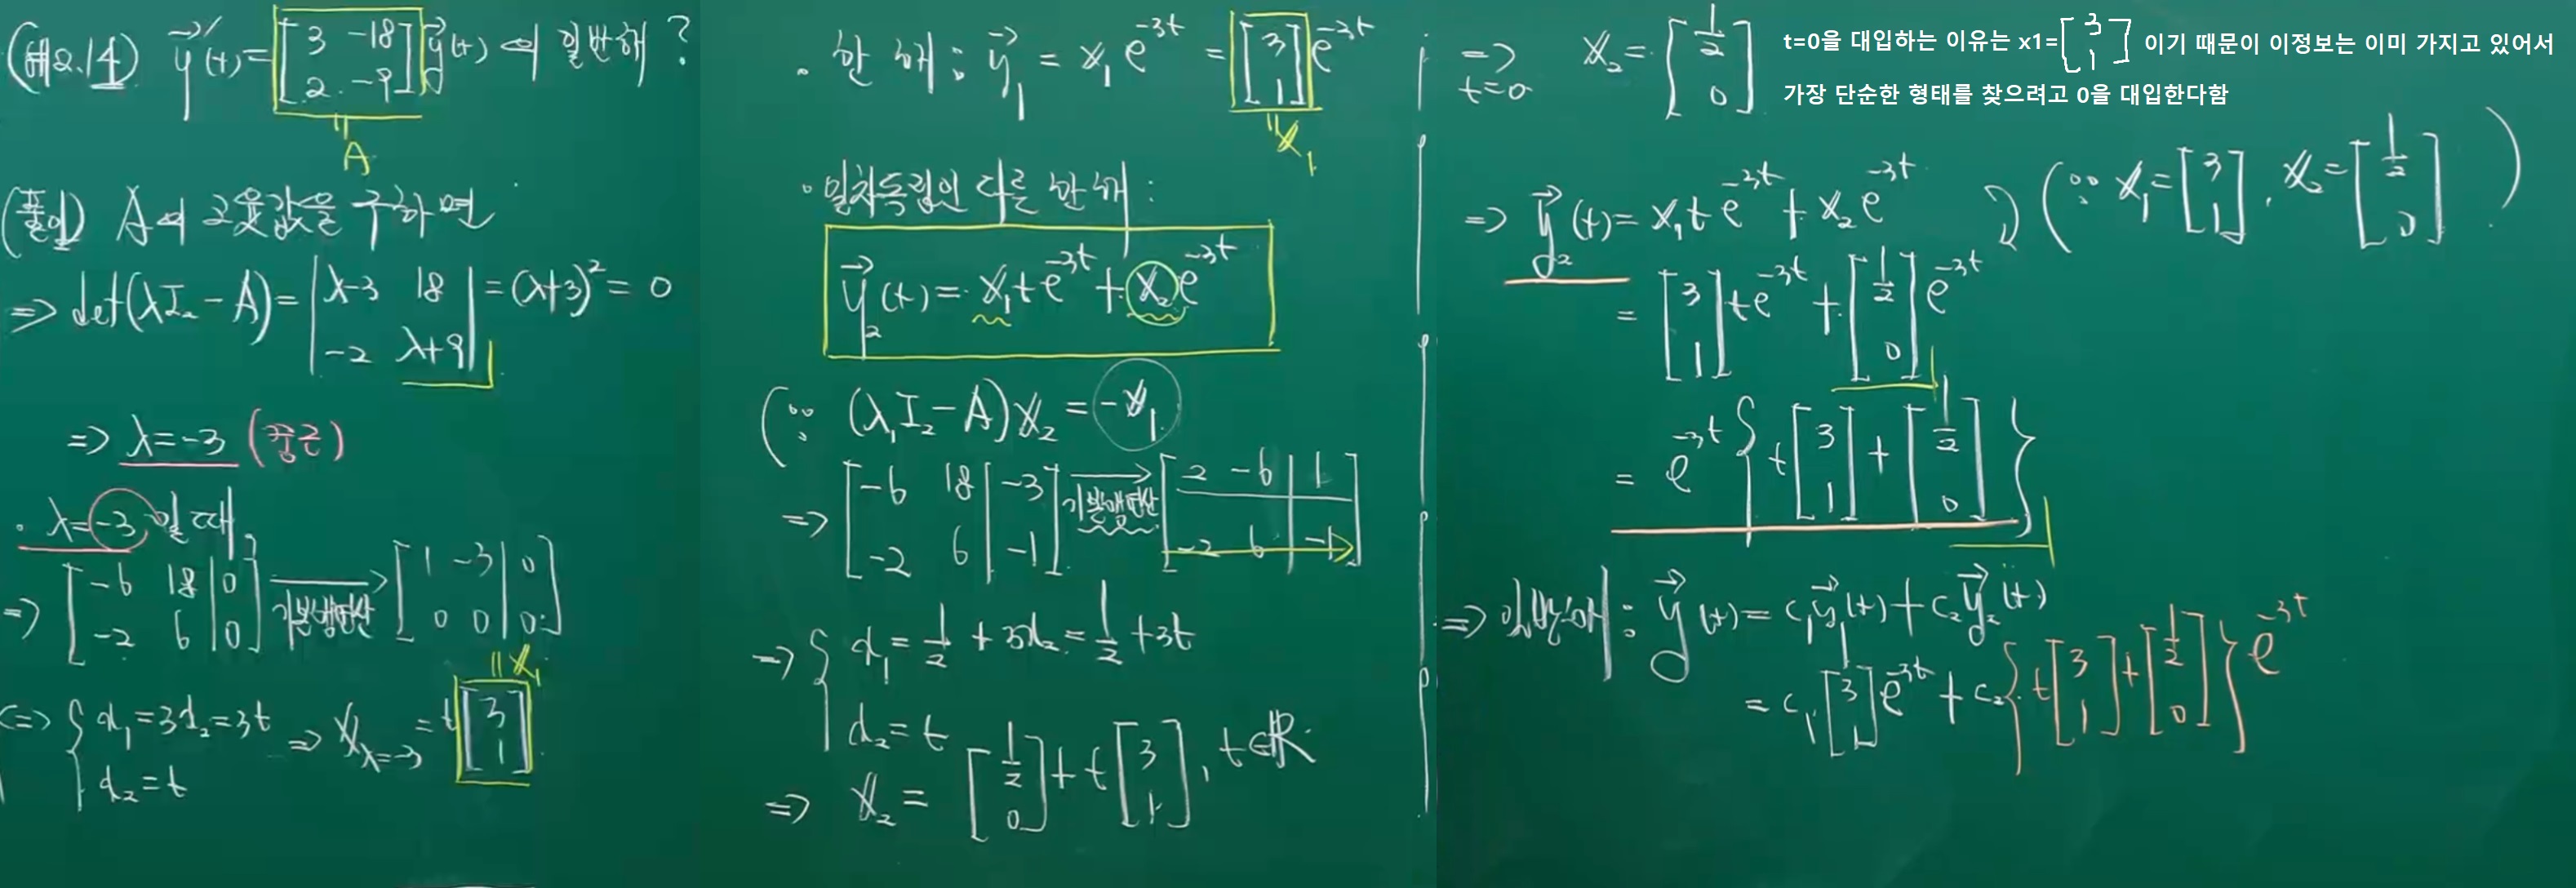 (예2.14) y⃗'(t) = [3 -18; 2 -9] y⃗(t) 의 일반해?
"A
(풀이) A의 고윳값을 구하면
⇒ det(λI₂ - A) = |λ-3 18; -2 λ+9| = (λ+3)² = 0
⇒ λ = -3 (중근)
· λ = -3 일 때,
⇒ [-6 18 | 0; -2 6 | 0] 기본행연산→ [1 -3 | 0; 0 0 | 0]
⇔ { x₁ = 3x₂ = 3t, x₂ = t ⇒ 𝕩_λ=-3 = t [3; 1]
" 𝕩₁
· 한 해 : y⃗₁ = 𝕩₁ e^-3t = [3; 1] e^-3t
" 𝕩₁
· 일차독립인 다른 한 해 :
y⃗₂(t) = 𝕩₁ t e^-3t + 𝕩₂ e^-3t
(∵ (λ₁I₂ - A) 𝕩₂ = -𝕩₁
⇒ [-6 18 | -3; -2 6 | -1] 기본행연산→ [2 -6 | 1; -2 6 | -1]
⇒ { x₁ = 1/2 + 3x₂ = 1/2 + 3t
x₂ = t
⇒ 𝕩₂ = [1/2; 0] + t [3; 1], t∈ℝ
⇒ t=0 𝕩₂ = [1/2; 0]
t=0을 대입하는 이유는 x1=[3; 1] 이기 때문이 이정보는 이미 가지고 있어서
가장 단순한 형태를 찾으려고 0을 대입한다함
⇒ y⃗₂(t) = 𝕩₁ t e^-3t + 𝕩₂ e^-3t (∵ 𝕩₁ = [3; 1], 𝕩₂ = [1/2; 0])
= [3; 1] t e^-3t + [1/2; 0] e^-3t
= e^-3t { t [3; 1] + [1/2; 0] }
⇒ 일반해 : y⃗(t) = c₁y⃗₁(t) + c₂y⃗₂(t)
= c₁ [3; 1] e^-3t + c₂ { t [3; 1] + [1/2; 0] } e^-3t